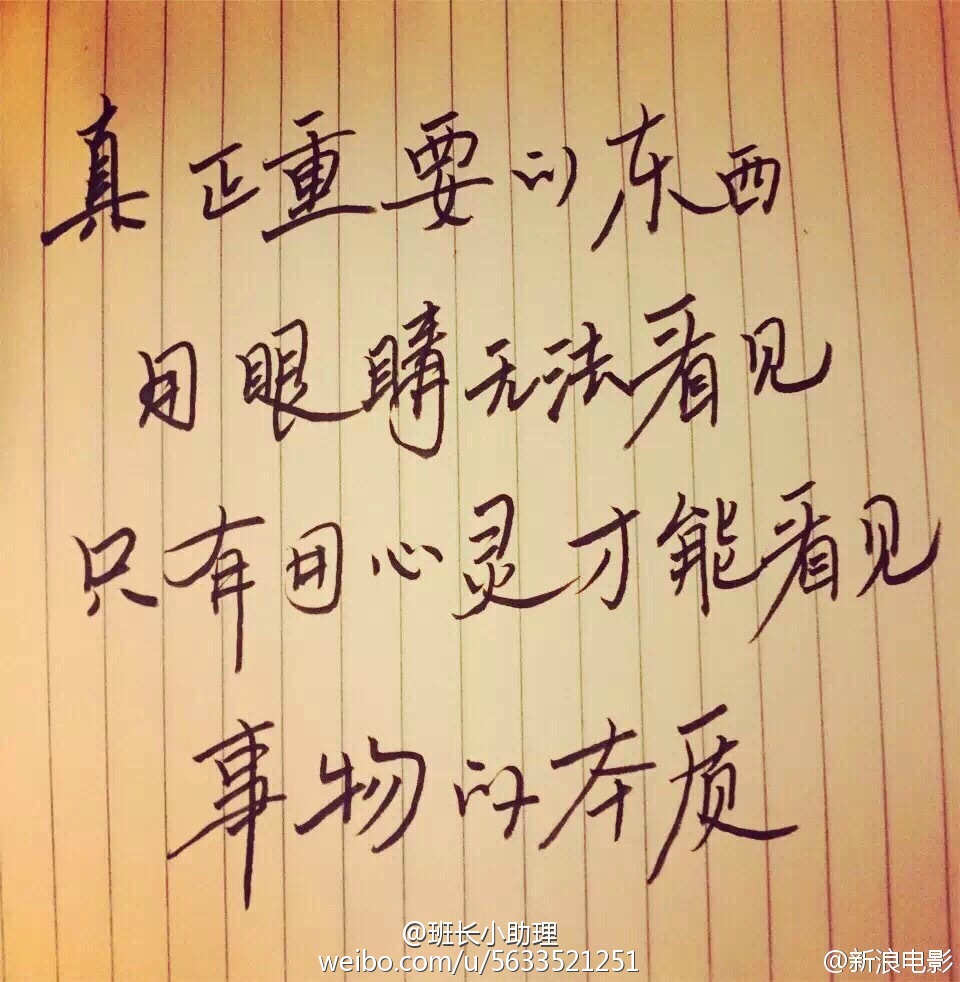 真正重要的东西
用眼睛无法看见
只有用心灵才能看见
事物的本质
@班长小助理
weibo.com/u/5633521251
@新浪电影